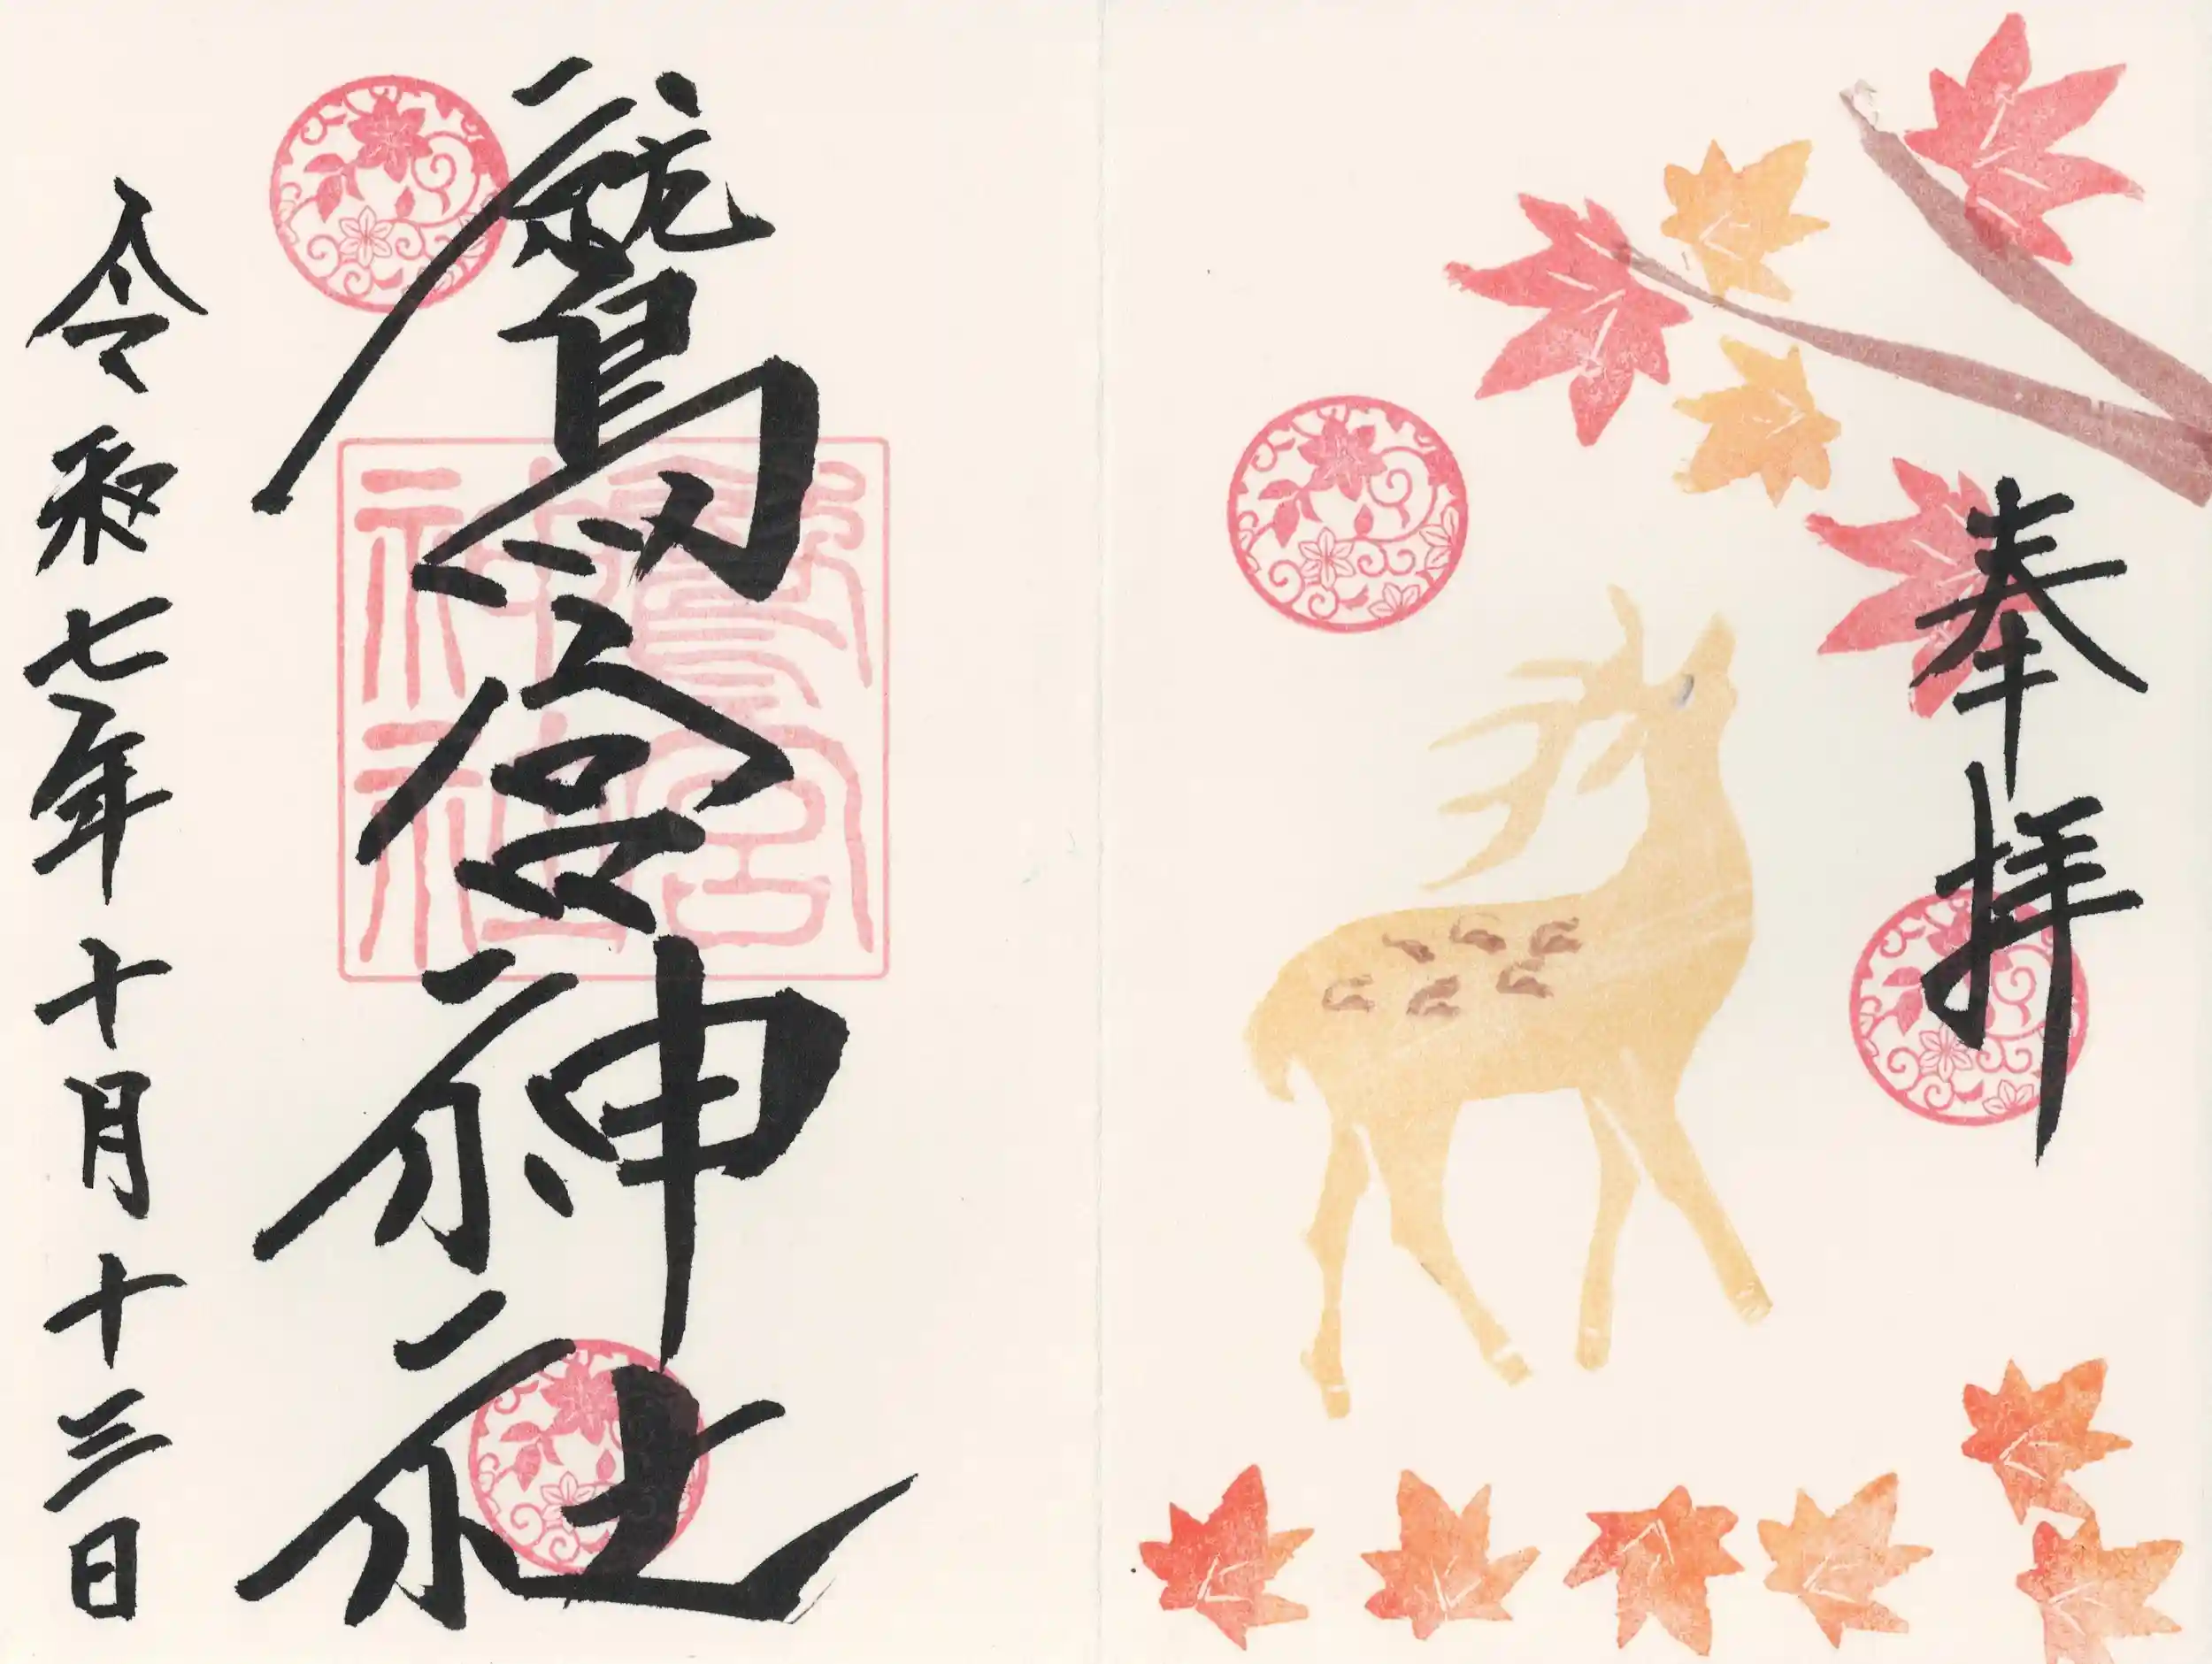 奉拝
鷲宮神社
令和七年十月十三日
鷲宮
神社